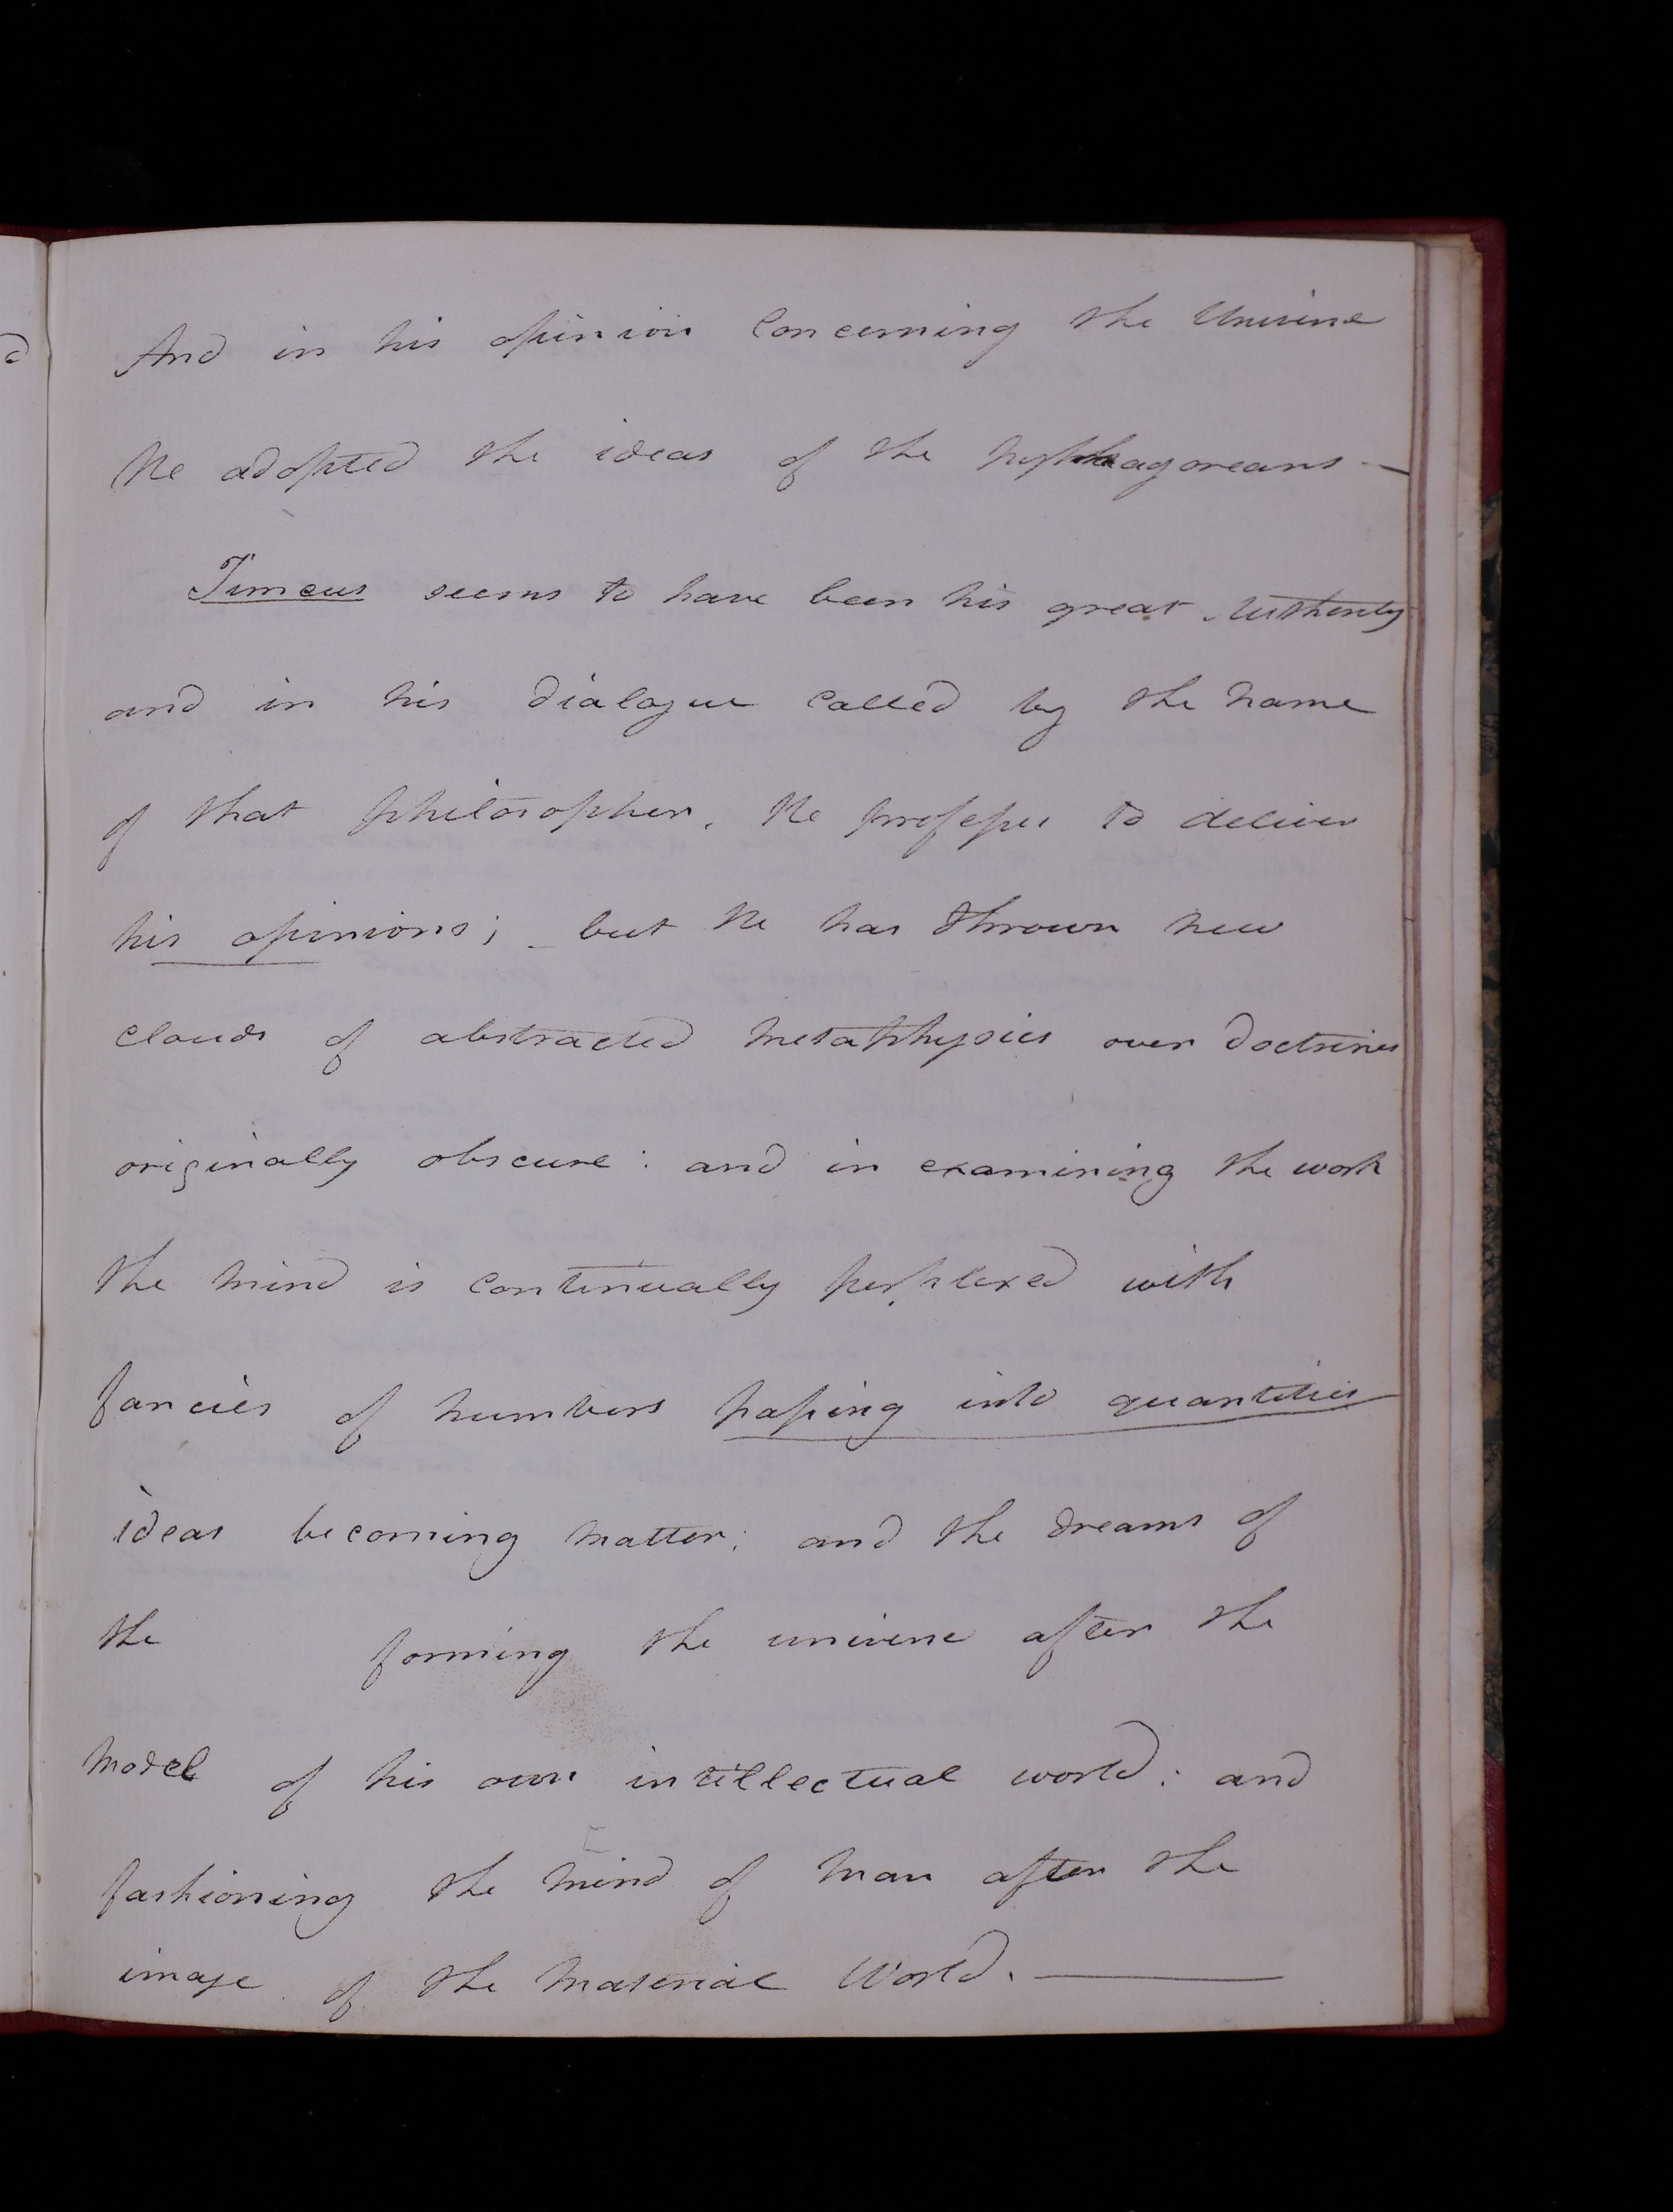 And in his opinion Concerning the Universe
he adopted the ideas of the pythagoreans —
Timeus seems to have been his great Authority
and in his dialogue called by the name
of that philosopher, he professes to deliver
his opinions; – but he has thrown new
clouds of abstracted metaphysics over doctrines
originally obscure: and in examining the work
the mind is continually perplexed with
fancies of numbers passing into quantities
ideas becoming matter; and the dreams of
the forming the universe after the
model of his own intellectual world: and
fashioning the mind of man after the
image of the material World. —